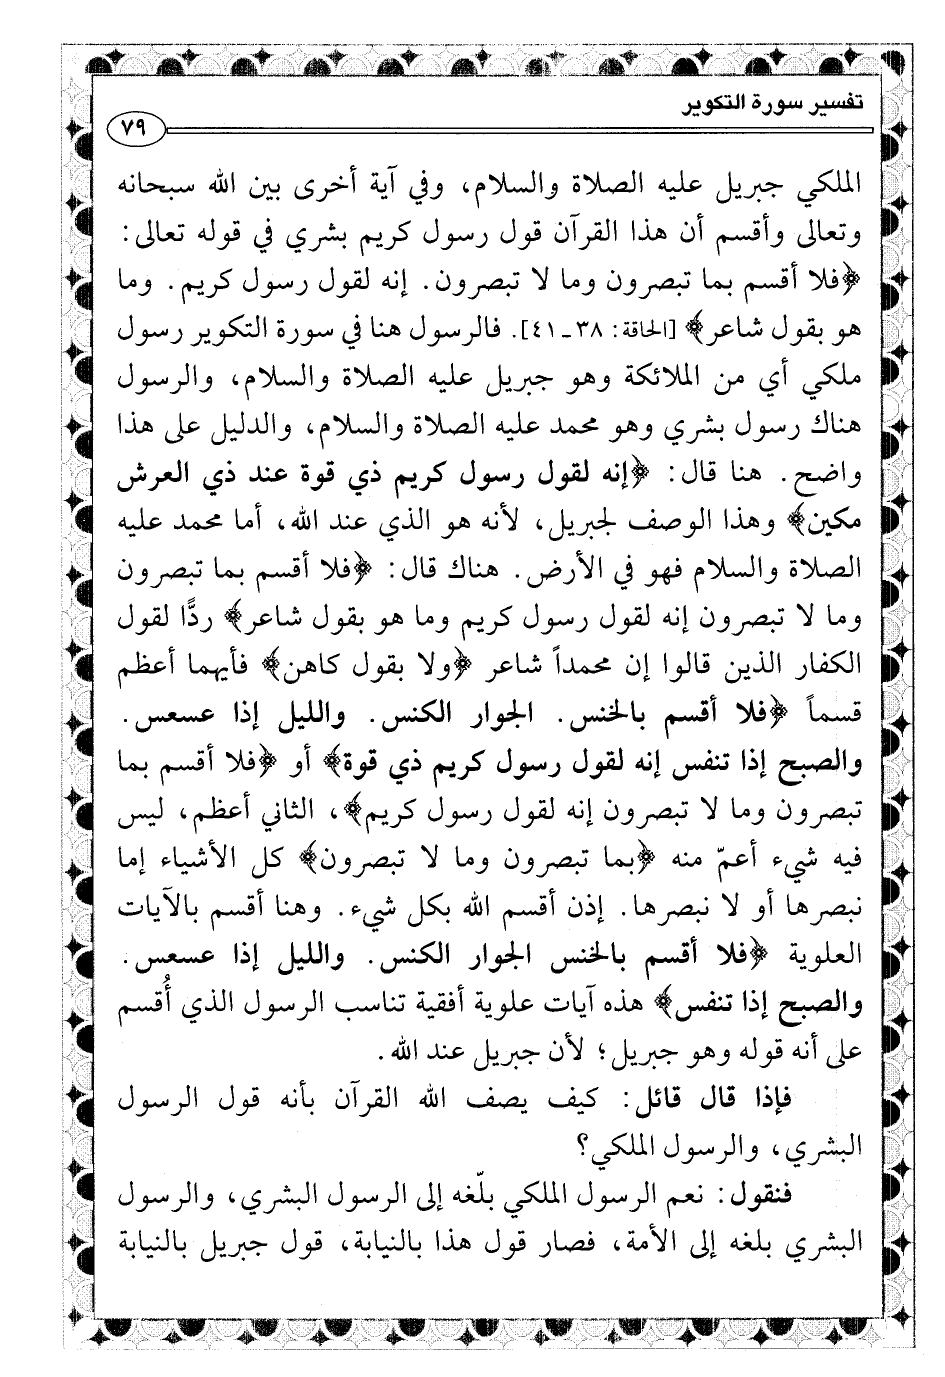 تفسير سورة التكوير
٧٩
الملكي جبريل عليه الصلاة والسلام، وفي آية أخرى بين الله سبحانه
وتعالى وأقسم أن هذا القرآن قول رسول كريم بشري في قوله تعالى:
﴿فلا أقسم بما تبصرون وما لا تبصرون. إنه لقول رسول كريم. وما
هو بقول شاعر﴾ [الحاقة: ٣٨ـ٤١]. فالرسول هنا في سورة التكوير رسول
ملكي أي من الملائكة وهو جبريل عليه الصلاة والسلام، والرسول
هناك رسول بشري وهو محمد عليه الصلاة والسلام، والدليل على هذا
واضح. هنا قال: ﴿إنه لقول رسول كريم ذي قوة عند ذي العرش
مكين﴾ وهذا الوصف لجبريل، لأنه هو الذي عند الله، أما محمد عليه
الصلاة والسلام فهو في الأرض. هناك قال: ﴿فلا أقسم بما تبصرون
وما لا تبصرون إنه لقول رسول كريم وما هو بقول شاعر﴾ ردًّا لقول
الكفار الذين قالوا إن محمداً شاعر ﴿ولا بقول كاهن﴾ فأيهما أعظم
قسماً ﴿فلا أقسم بالخنس. الجوار الكنس. والليل إذا عسعس.
والصبح إذا تنفس إنه لقول رسول كريم ذي قوة﴾ أو ﴿فلا أقسم بما
تبصرون وما لا تبصرون إنه لقول رسول كريم﴾، الثاني أعظم، ليس
فيه شيء أعمّ منه ﴿بما تبصرون وما لا تبصرون﴾ كل الأشياء إما
نبصرها أو لا نبصرها. إذن أقسم الله بكل شيء. وهنا أقسم بالآيات
العلوية ﴿فلا أقسم بالخنس الجوار الكنس. والليل إذا عسعس.
والصبح إذا تنفس﴾ هذه آيات علوية أفقية تناسب الرسول الذي أُقسم
على أنه قوله وهو جبريل؛ لأن جبريل عند الله.
فإذا قال قائل: كيف يصف الله القرآن بأنه قول الرسول
البشري، والرسول الملكي؟
فنقول: نعم الرسول الملكي بلّغه إلى الرسول البشري، والرسول
البشري بلغه إلى الأمة، فصار قول هذا بالنيابة، قول جبريل بالنيابة